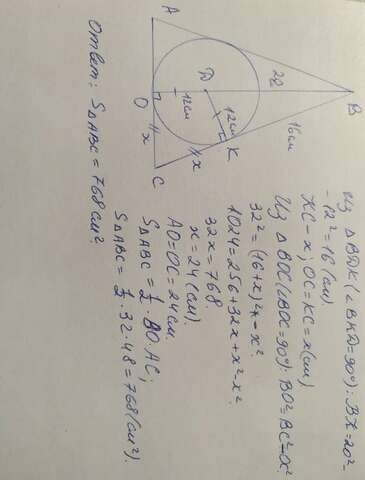 A
B
20
D
12см
12см
16см
K
O
x
x
C
Из ΔBDK (∠BKD=90°): BK=20²-
-12²=16(см).
KC-x; OC=KC=x(см)
Из ΔBOC(∠BOC=90°): BO²=BC²-OC²
32²=(16+x)²-x².
1024=256+32x+x²-x².
32x=768.
x=24(см).
AO=OC=24см
SΔABC=½·BO·AC;
SΔABC=½·32·48=768(см²).
Ответ: SΔABC=768см².